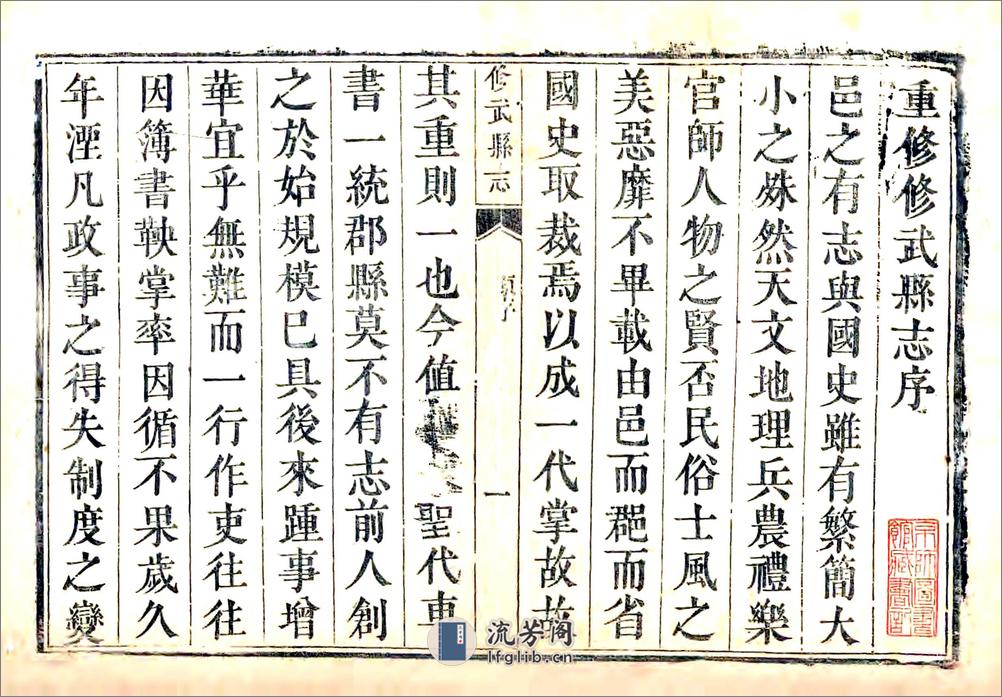 重修修武縣志序
邑之有志與國史雖有繁簡大
小之殊然天文地理兵農禮樂
官師人物之賢否民俗士風之
美惡靡不畢載由邑而郡而省
國史取裁焉以成一代掌故故
修武縣志
序
一
其重則一也今值
聖代車
書一統郡縣莫不有志前人創
之於始規模已具後來踵事增
華宜乎無難而一行作吏往往
因簿書鞅掌率因循不果歲久
年湮凡政事之得失制度之變
京師圖書
館藏書印
流芳阁
lfglib.cn